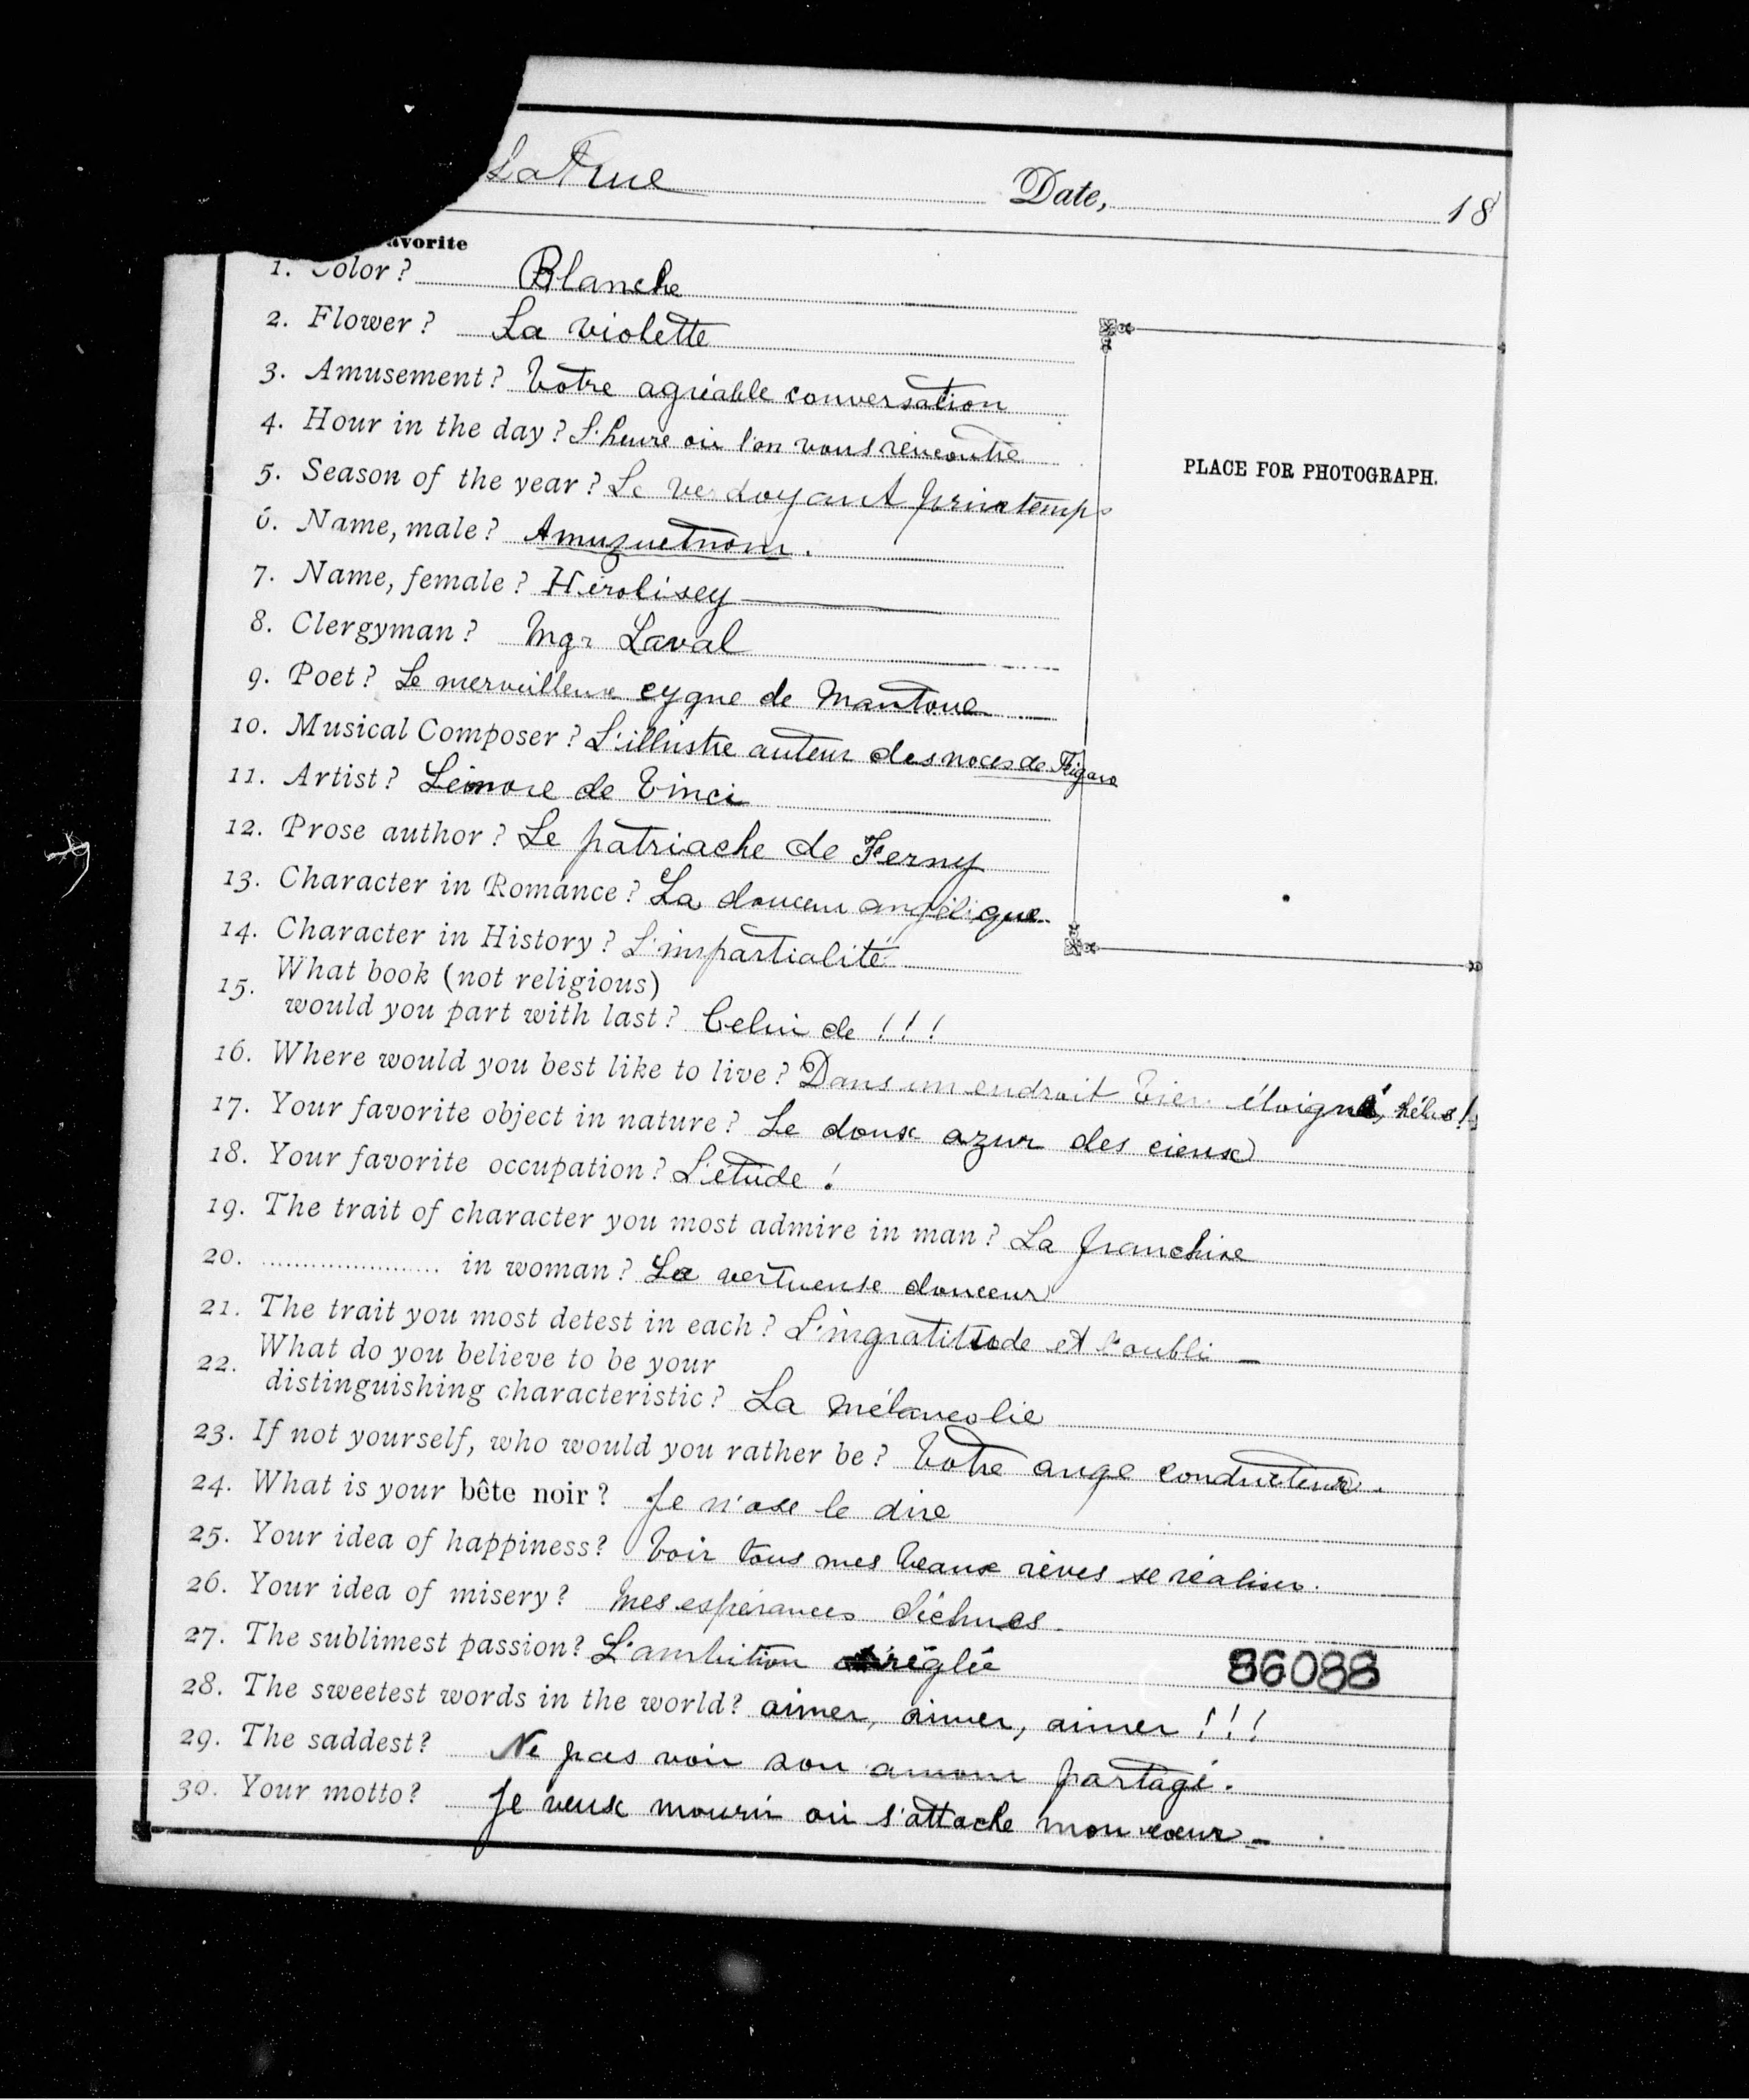 LaRue Date, 18
avorite
1. Color? Blanche
2. Flower? La violette
3. Amusement? Votre agréable conversation
4. Hour in the day? L'heure où l'on vous rencontre
5. Season of the year? Le verdoyant printemps
6. Name, male? Amuzuetnom.
7. Name, female? Hérolisey
8. Clergyman? Mgr Laval
9. Poet? Le merveilleux cygne de Mantoue
10. Musical Composer? L'illustre auteur des noces de Figaro
PLACE FOR PHOTOGRAPH.
11. Artist? de Vinci
12. Prose author? Le patriache de Ferny
13. Character in Romance? La douceur angélique
14. Character in History? L'impartialité
15. What book (not religious)
would you part with last? Celui de !!!
16. Where would you best like to live? Dans un endroit bien éloigné, hélas!
17. Your favorite object in nature? Le doux azur des cieux
18. Your favorite occupation? L'étude!
19. The trait of character you most admire in man? La franchise
20. .................... in woman? La vertueuse douceur
21. The trait you most detest in each? L'ingratitude et l'oubli –
22. What do you believe to be your
distinguishing characteristic? La mélancolie
23. If not yourself, who would you rather be? Votre ange conducteur.
24. What is your bête noir? Je n'ose le dire
25. Your idea of happiness? Voir tous mes beaux rêves se réaliser.
26. Your idea of misery? Mes espérances déchues.
27. The sublimest passion? L'ambition réglée
86088
28. The sweetest words in the world? aimer, aimer, aimer !!!
29. The saddest? Ne pas voir son amour partagé.
30. Your motto? Je veux mourir où s'attache mon cœur –